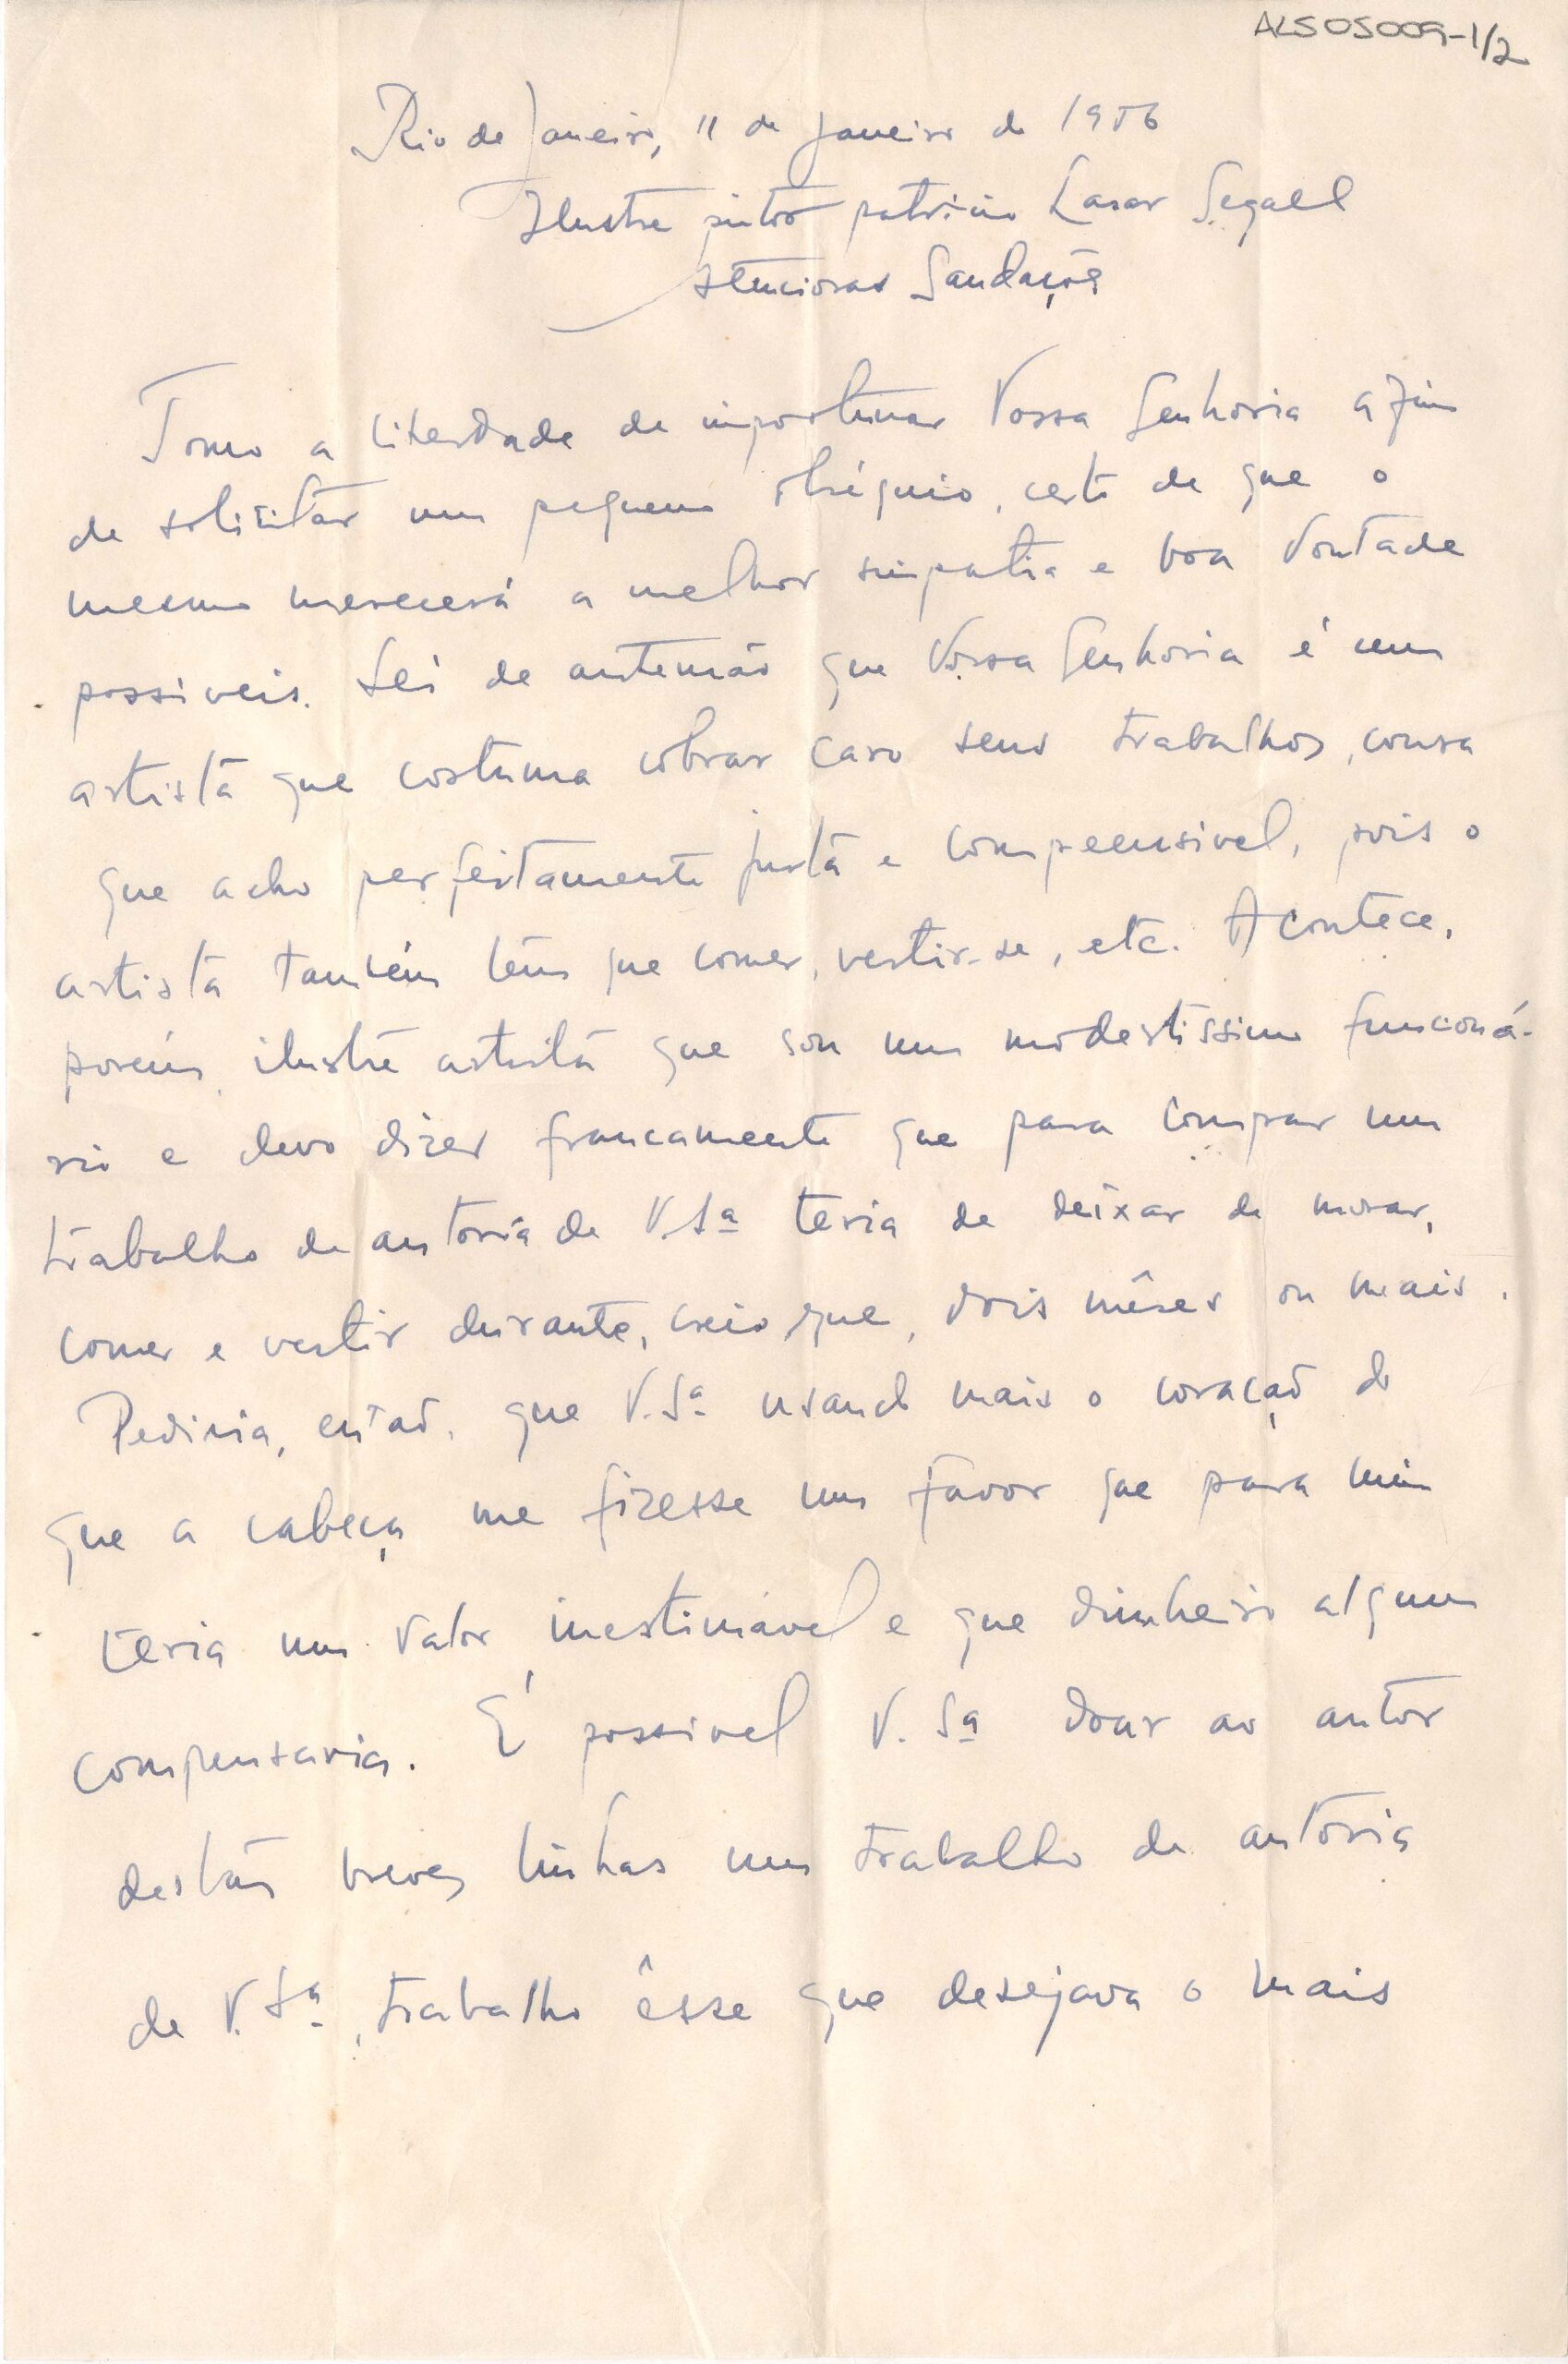 ALS05009-1/2
Rio de Janeiro, 11 de Janeiro de 1956
Ilustre pintor patricio Lasar Segall
Atenciosas Saudações
Tomo a liberdade de importunar Vossa Senhoria afim
de solicitar um pequeno obséquio, certo de que o
mesmo merecerá a melhor simpatia e boa vontade
possiveis. Sei de antemão que Vossa Senhoria é um
artista que costuma cobrar caro seus trabalhos, cousa
que acho perfeitamente justa e compreensivel, pois o
artista também têm que comer, vestir-se, etc. Acontece,
porém, ilustre artista que sou um modestissimo funcioná-
rio e devo dizer francamente que para comprar um
trabalho de autoria de V.Sª teria de deixar de morar,
comer e vestir durante, creio que, dois mêses ou mais.
Pediria, então, que V.Sª usando mais o coração do
que a cabeça me fizesse um favor que para mim
teria um valor inestimável e que dinheiro algum
compensaria. É possivel V. Sª doar ao autor
destas breves linhas um trabalho de autoria
de V.Sª, trabalho êsse que desejava o mais